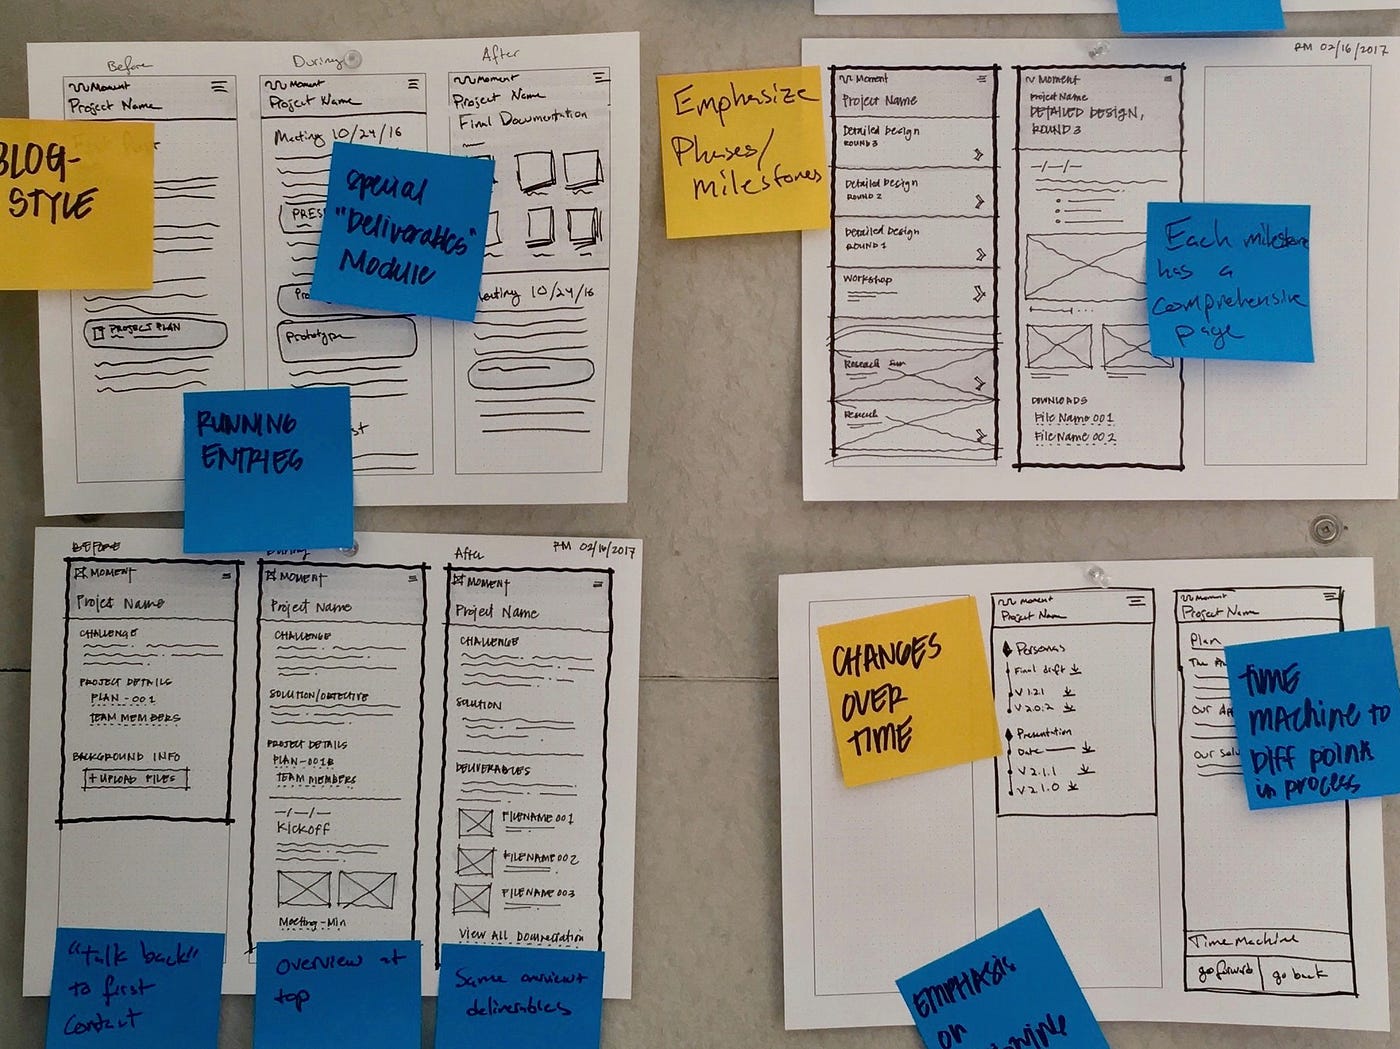 Before
During
After
Moment
Project Name
BLOG-
STYLE
PROJECT PLAN
Moment
Project Name
Meeting 10/24/16
PRES
Special
"Deliverables"
Module
Prototype
Moment
Project Name
Final Documentation
Meeting 10/24/16
RUNNING
ENTRIES
Emphasize
Phases/
milestones
RM 02/16/2017
Moment
Project Name
Detailed Design
ROUND 3
Detailed Design
ROUND 2
Detailed Design
ROUND 1
Workshop
Research
Research
Moment
Project Name
DETAILED DESIGN,
ROUND 3
-/-/-
DOWNLOADS
File Name 001
File Name 002
Each milestone
has a
comprehensive
page
BEFORE
MOMENT
Project Name
CHALLENGE
PROJECT DETAILS
PLAN-001
TEAM MEMBERS
BACKGROUND INFO
+ UPLOAD FILES
"talk back"
to first
contact
During
MOMENT
Project Name
CHALLENGE
SOLUTION/OBJECTIVE
PROJECT DETAILS
PLAN-001B
TEAM MEMBERS
-/-/-
KICKOFF
Meeting-Min
overview at
top
After
RM 02/16/2017
MOMENT
Project Name
CHALLENGE
SOLUTION
DELIVERABLES
FILENAME 001
FILENAME 002
FILENAME 003
View All Documentation
Same
deliverables
CHANGES
OVER
TIME
Moment
Project Name
Personas
Final draft
V 1.2.1
V 2.0.2
Presentation
Date
V 2.1.1
V 2.1.0
Moment
Project Name
Plan
The
Our
Our Solu
TIME
MACHINE to
Diff points
in process
Time Machine
go forward
go back
EMPHASIS
on